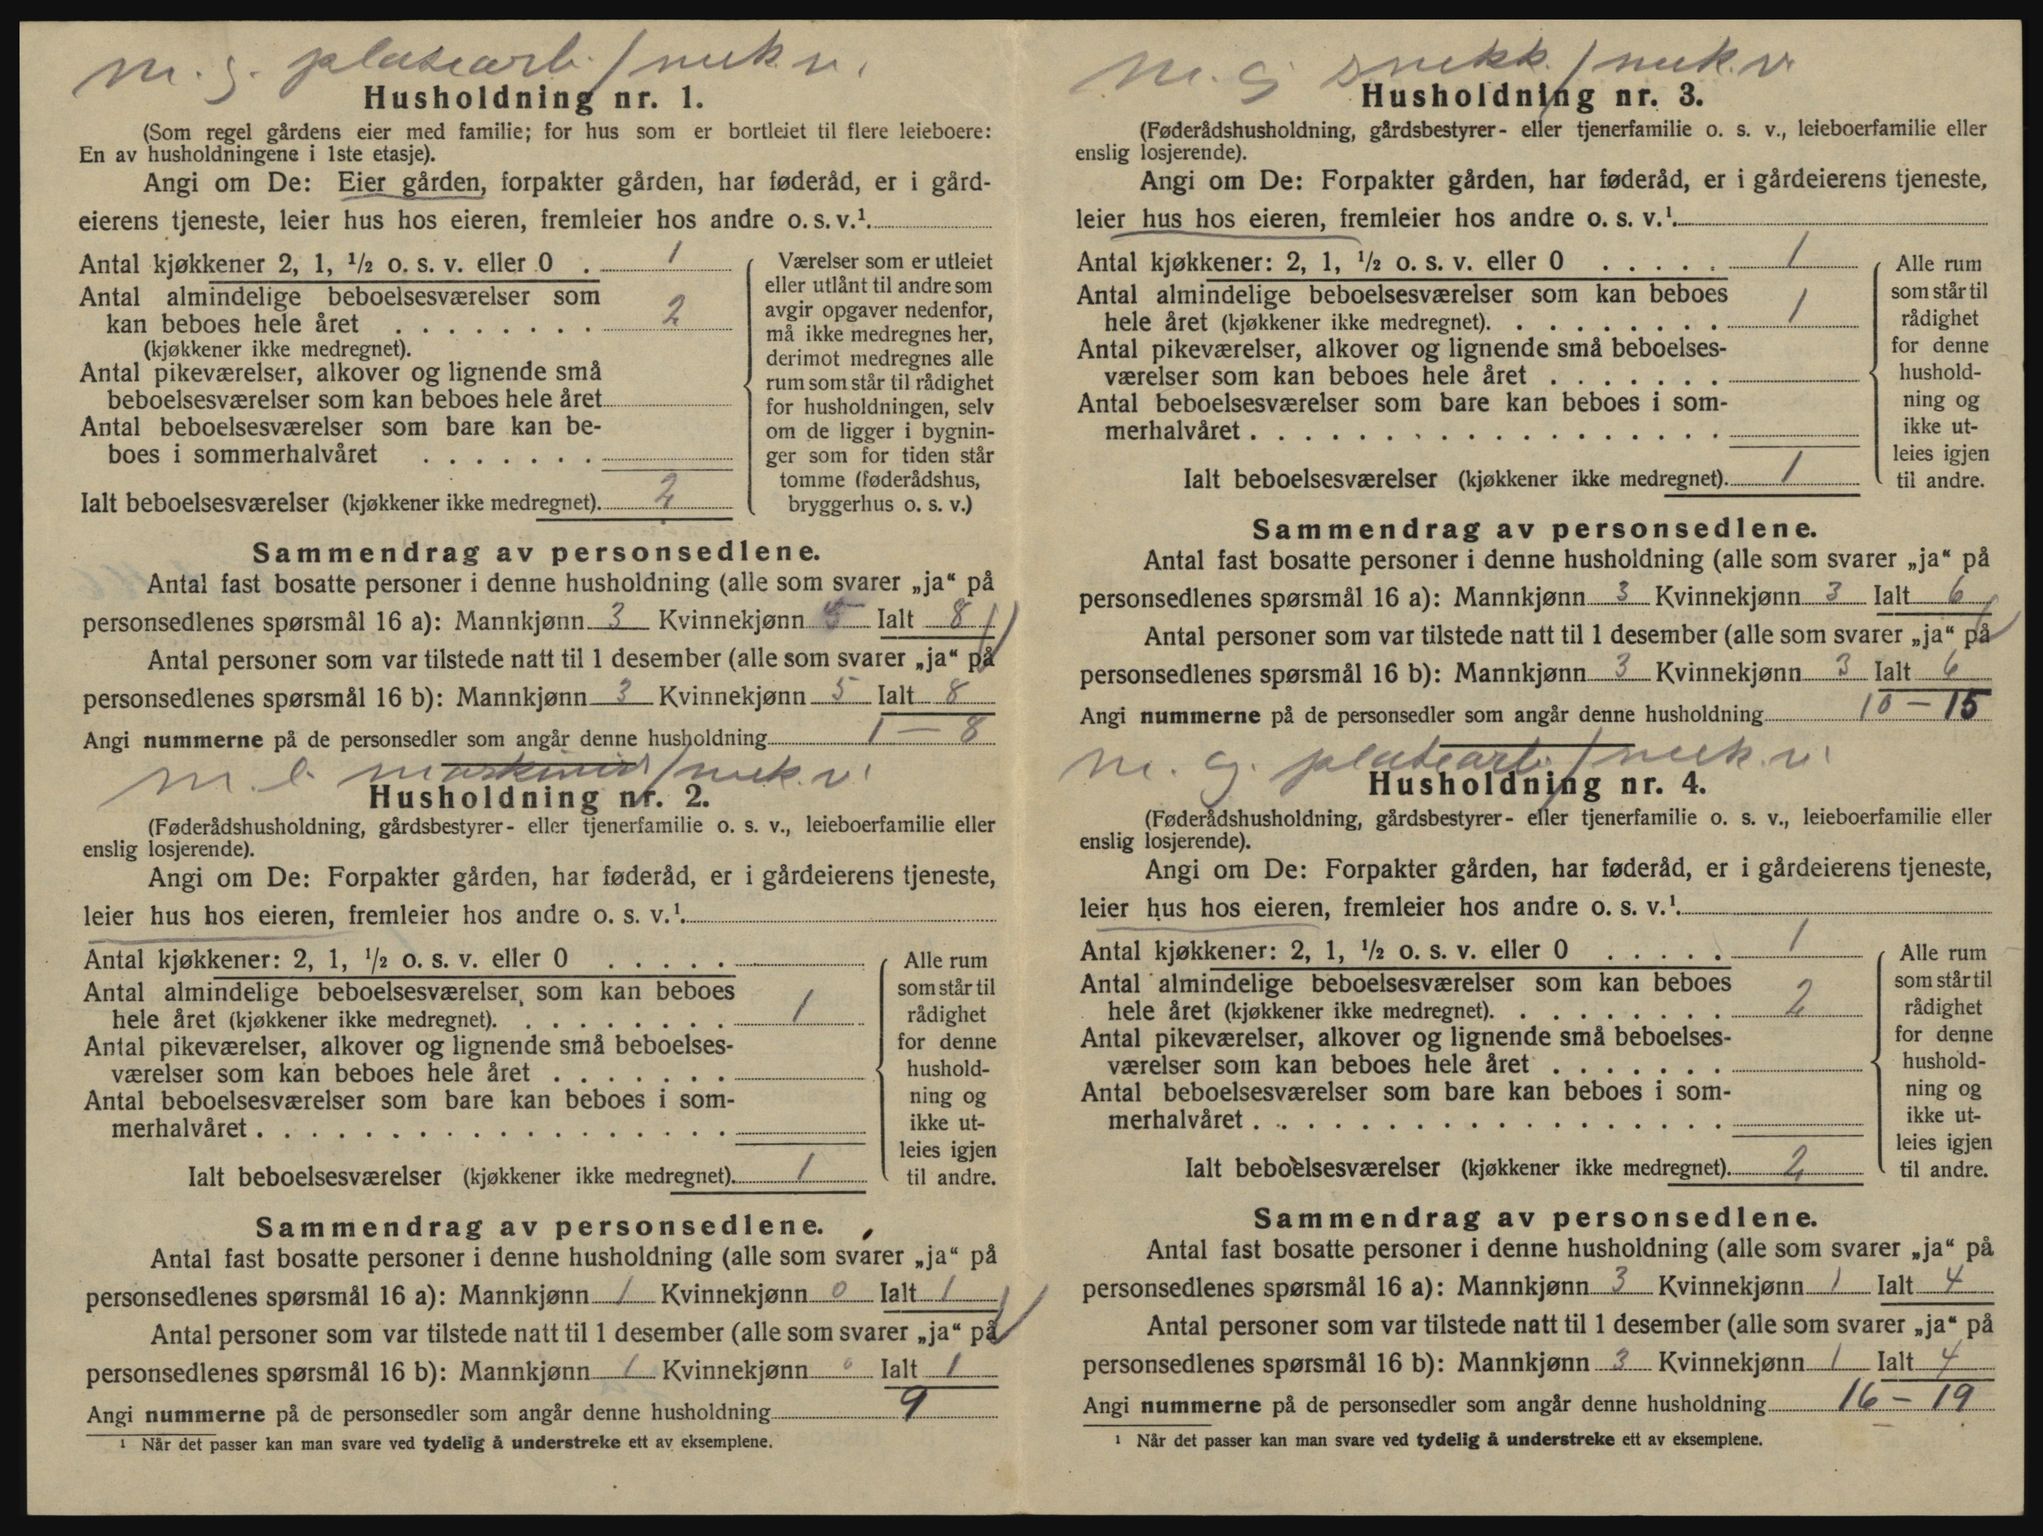 m. g. platearb. / mek. v.
Husholdning nr. 1.
(Som regel gårdens eier med familie; for hus som er bortleiet til flere leieboere:
En av husholdningene i 1ste etasje).
Angi om De: Eier gården, forpakter gården, har føderåd, er i gård-
eierens tjeneste, leier hus hos eieren, fremleier hos andre o. s. v.¹.
Antal kjøkkener 2, 1, ½ o. s. v. eller 0 . 1
Antal almindelige beboelsesværelser som
kan beboes hele året . . . . . . . . 2
(kjøkkener ikke medregnet).
Antal pikeværelser, alkover og lignende små
beboelsesværelser som kan beboes hele året
Antal beboelsesværelser som bare kan be-
boes i sommerhalvåret . . . . . . .
Ialt beboelsesværelser (kjøkkener ikke medregnet). 2
Værelser som er utleiet
eller utlånt til andre som
avgir opgaver nedenfor,
må ikke medregnes her,
derimot medregnes alle
rum som står til rådighet
for husholdningen, selv
om de ligger i bygnin-
ger som for tiden står
tomme (føderådshus,
bryggerhus o. s. v.)
Sammendrag av personsedlene.
Antal fast bosatte personer i denne husholdning (alle som svarer „ja“ på
personsedlenes spørsmål 16 a): Mannkjønn 3 Kvinnekjønn 5 Ialt 8
Antal personer som var tilstede natt til 1 desember (alle som svarer „ja“ på
personsedlenes spørsmål 16 b): Mannkjønn 3 Kvinnekjønn 5 Ialt 8
Angi nummerne på de personsedler som angår denne husholdning 1 — 8
m. l. / mek. v.
Husholdning nr. 2.
(Føderådshusholdning, gårdsbestyrer- eller tjenerfamilie o. s. v., leieboerfamilie eller
enslig losjerende).
Angi om De: Forpakter gården, har føderåd, er i gårdeierens tjeneste,
leier hus hos eieren, fremleier hos andre o. s. v.¹.
Antal kjøkkener: 2, 1, ½ o. s. v. eller 0 . . . . .
Antal almindelige beboelsesværelser som kan beboes
hele året (kjøkkener ikke medregnet). . . . . . . . . 1
Antal pikeværelser, alkover og lignende små beboelses-
værelser som kan beboes hele året . . . . . . .
Antal beboelsesværelser som bare kan beboes i som-
merhalvåret . . . . . . . . . . . . . . . . . .
Ialt beboelsesværelser (kjøkkener ikke medregnet). 1
Alle rum
som står til
rådighet
for denne
hushold-
ning og
ikke ut-
leies igjen
til andre.
Sammendrag av personsedlene.
Antal fast bosatte personer i denne husholdning (alle som svarer „ja“ på
personsedlenes spørsmål 16 a): Mannkjønn 1 Kvinnekjønn 0 Ialt 1
Antal personer som var tilstede natt til 1 desember (alle som svarer „ja“ på
personsedlenes spørsmål 16 b): Mannkjønn 1 Kvinnekjønn 0 Ialt 1
Angi nummerne på de personsedler som angår denne husholdning 9
¹ Når det passer kan man svare ved tydelig å understreke ett av eksemplene.
m. g. snekk. / mek. v.
Husholdning nr. 3.
(Føderådshusholdning, gårdsbestyrer- eller tjenerfamilie o. s. v., leieboerfamilie eller
enslig losjerende).
Angi om De: Forpakter gården, har føderåd, er i gårdeierens tjeneste,
leier hus hos eieren, fremleier hos andre o. s. v.¹.
Antal kjøkkener: 2, 1, ½ o. s. v. eller 0 . . . . . 1
Antal almindelige beboelsesværelser som kan beboes
hele året (kjøkkener ikke medregnet). . . . . . . . . 1
Antal pikeværelser, alkover og lignende små beboelses-
værelser som kan beboes hele året . . . . . . .
Antal beboelsesværelser som bare kan beboes i som-
merhalvåret . . . . . . . . . . . . . . . . . .
Ialt beboelsesværelser (kjøkkener ikke medregnet). 1
Alle rum
som står til
rådighet
for denne
hushold-
ning og
ikke ut-
leies igjen
til andre.
Sammendrag av personsedlene.
Antal fast bosatte personer i denne husholdning (alle som svarer „ja“ på
personsedlenes spørsmål 16 a): Mannkjønn 3 Kvinnekjønn 3 Ialt 6
Antal personer som var tilstede natt til 1 desember (alle som svarer „ja“ på
personsedlenes spørsmål 16 b): Mannkjønn 3 Kvinnekjønn 3 Ialt 6
Angi nummerne på de personsedler som angår denne husholdning 10 — 15
m. g. platearb. / mek. v.
Husholdning nr. 4.
(Føderådshusholdning, gårdsbestyrer- eller tjenerfamilie o. s. v., leieboerfamilie eller
enslig losjerende).
Angi om De: Forpakter gården, har føderåd, er i gårdeierens tjeneste,
leier hus hos eieren, fremleier hos andre o. s. v.¹.
Antal kjøkkener: 2, 1, ½ o. s. v. eller 0 . . . . . 1
Antal almindelige beboelsesværelser som kan beboes
hele året (kjøkkener ikke medregnet). . . . . . . . . 2
Antal pikeværelser, alkover og lignende små beboelses-
værelser som kan beboes hele året . . . . . . .
Antal beboelsesværelser som bare kan beboes i som-
merhalvåret . . . . . . . . . . . . . . . . . .
Ialt beboelsesværelser (kjøkkener ikke medregnet). 2
Alle rum
som står til
rådighet
for denne
hushold-
ning og
ikke ut-
leies igjen
til andre.
Sammendrag av personsedlene.
Antal fast bosatte personer i denne husholdning (alle som svarer „ja“ på
personsedlenes spørsmål 16 a): Mannkjønn 3 Kvinnekjønn 1 Ialt 4
Antal personer som var tilstede natt til 1 desember (alle som svarer „ja“ på
personsedlenes spørsmål 16 b): Mannkjønn 3 Kvinnekjønn 1 Ialt 4
Angi nummerne på de personsedler som angår denne husholdning 16 — 19
¹ Når det passer kan man svare ved tydelig å understreke ett av eksemplene.